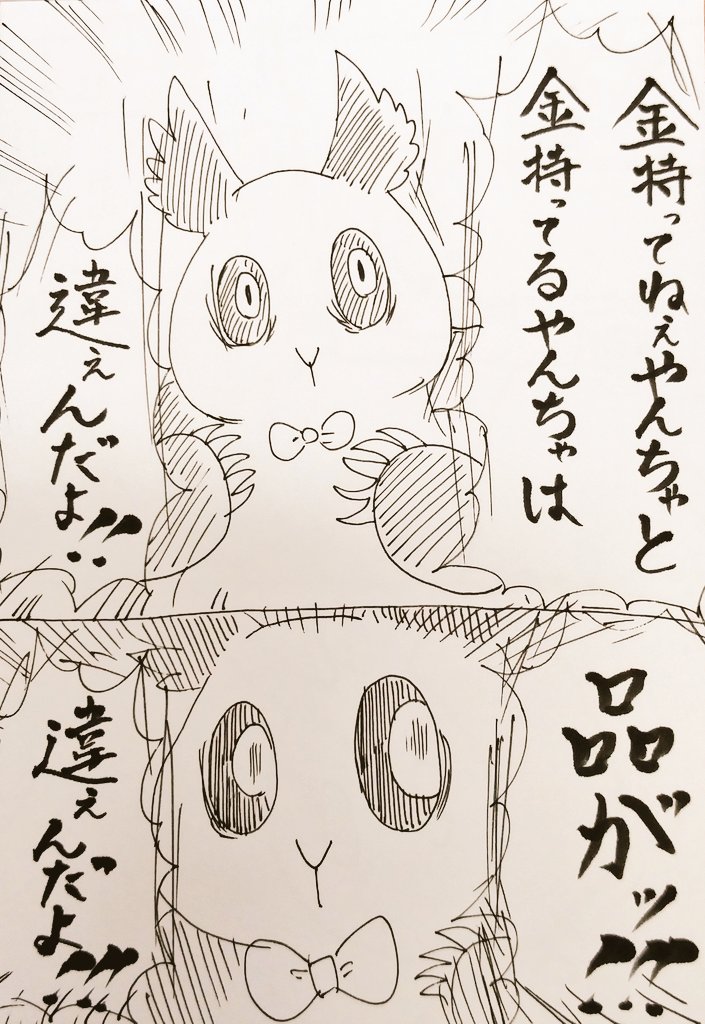 金持ってねぇやんちゃと
金持ってるやんちゃは
違ぇんだよ!!
品がッ!!
違ぇんだよ!!!